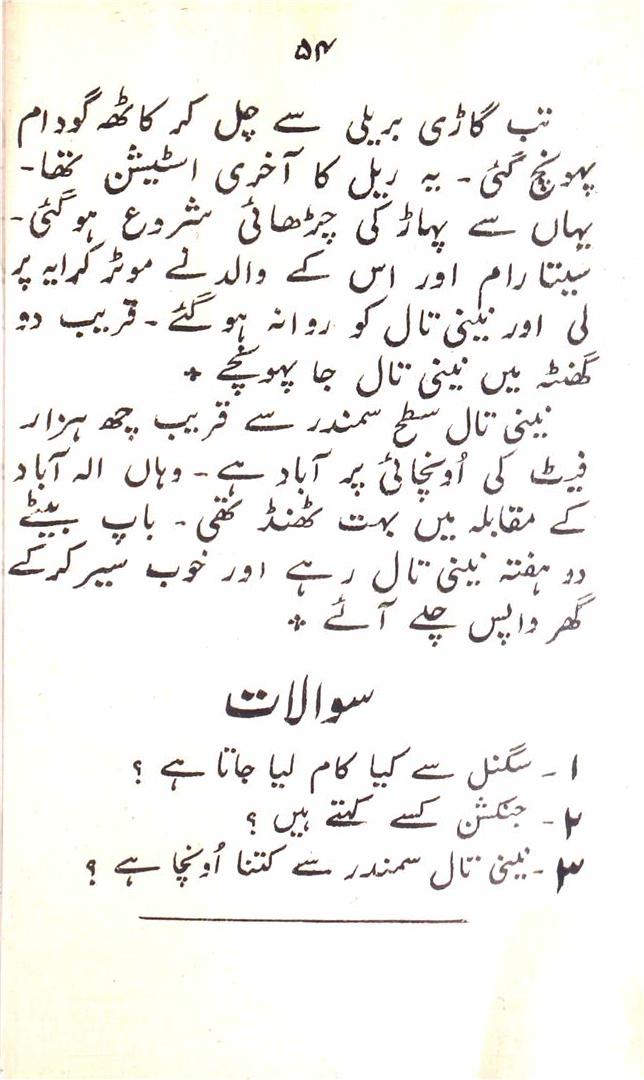 ۵۴
تب گاڑی بریلی سے چل کر کاٹھ گودام
پہونچ گئی۔ یہ ریل کا آخری اسٹیشن تھا۔
یہاں سے پہاڑ کی چڑھائی شروع ہو گئی۔
سیتا رام اور اس کے والد نے موٹر کرایہ پر
لی اور نینی تال کو روانہ ہو گئے۔ قریب دو
گھنٹہ میں نینی تال جا پہونچے +
نینی تال سطح سمندر سے قریب چھ ہزار
فیٹ کی اُونچائی پر آباد ہے۔ وہاں الہ آباد
کے مقابلہ میں بہت ٹھنڈ تھی۔ باپ بیٹے
دو ہفتہ نینی تال رہے اور خوب سیر کر کے
گھر واپس چلے آئے +
سوالات
۱۔ سگنل سے کیا کام لیا جاتا ہے ؟
۲۔ جنکشن کسے کہتے ہیں ؟
۳۔ نینی تال سمندر سے کتنا اُونچا ہے ؟